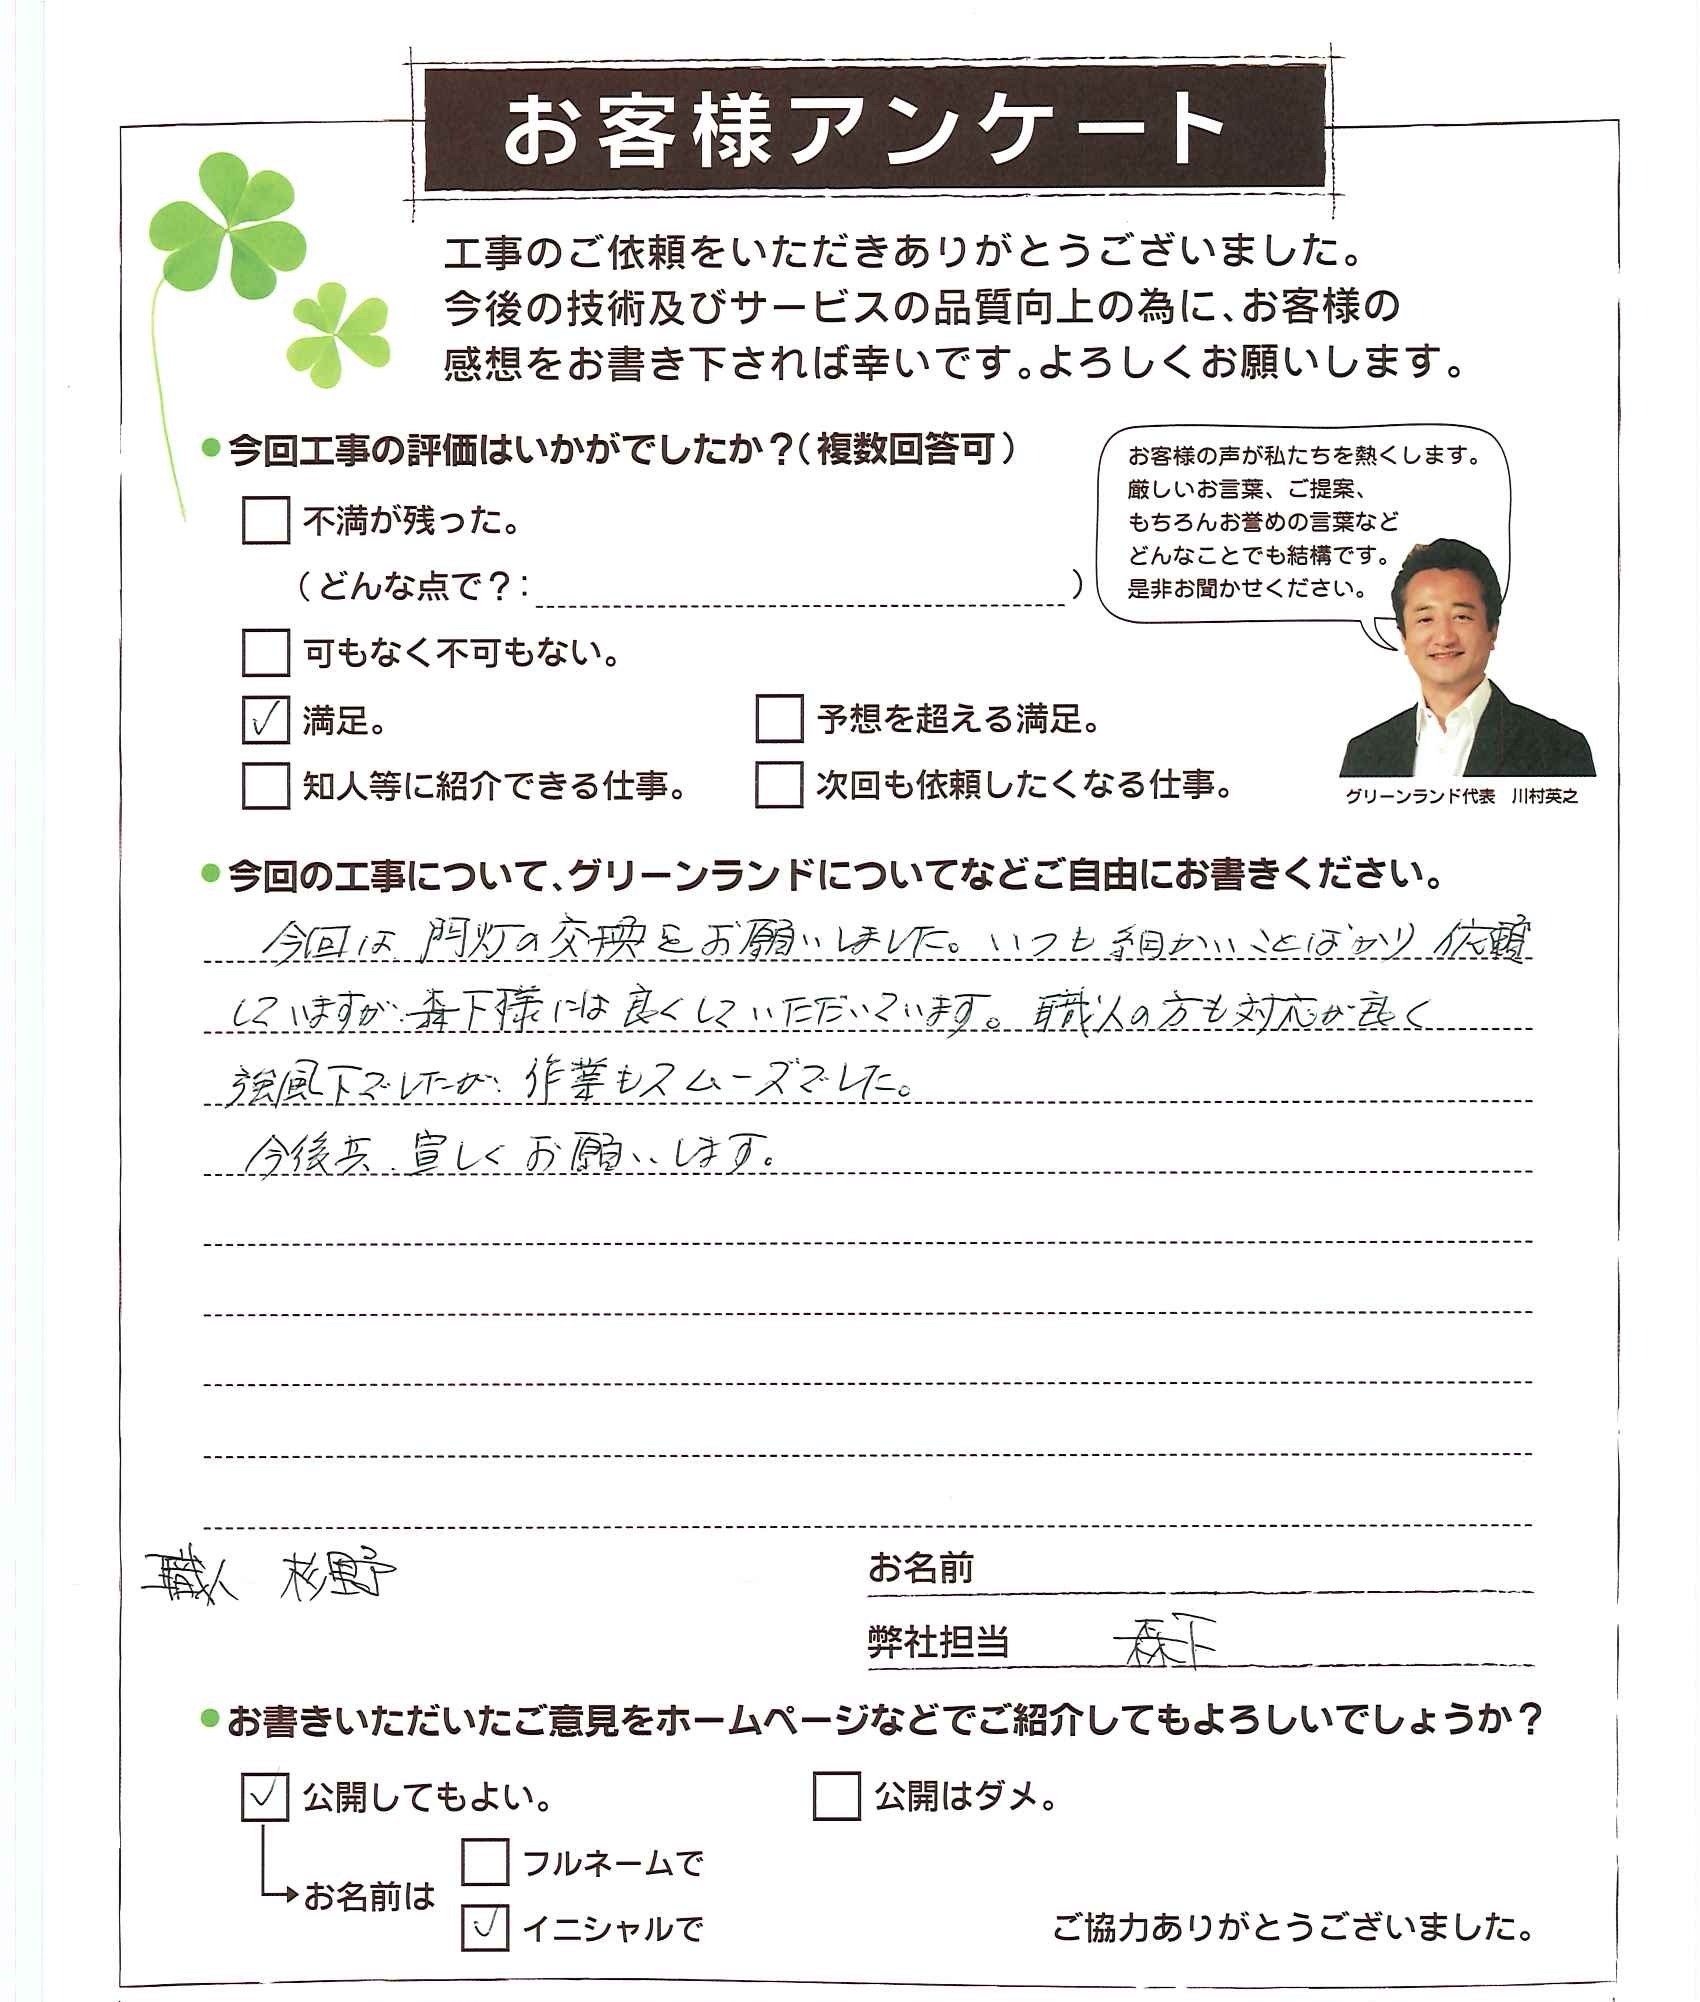 お客様アンケート
工事のご依頼をいただきありがとうございました。
今後の技術及びサービスの品質向上の為に、お客様の
感想をお書き下されば幸いです。よろしくお願いします。
●今回工事の評価はいかがでしたか？（複数回答可）
不満が残った。
（どんな点で？：　）
可もなく不可もない。
✓ 満足。
予想を超える満足。
知人等に紹介できる仕事。
次回も依頼したくなる仕事。
お客様の声が私たちを熱くします。
厳しいお言葉、ご提案、
もちろんお誉めの言葉など
どんなことでも結構です。
是非お聞かせください。
グリーンランド代表　川村英之
●今回の工事について、グリーンランドについてなどご自由にお書きください。
今回は、門灯の交換をお願いしました。いつも細かいことばかり依頼
していますが、森下様には良くしていただいています。職人の方も対応が良く
強風下でしたが、作業もスムーズでした。
今後共、宜しくお願いします。
職人　杉野
お名前
弊社担当　森下
●お書きいただいたご意見をホームページなどでご紹介してもよろしいでしょうか？
✓ 公開してもよい。
公開はダメ。
お名前は
フルネームで
✓ イニシャルで
ご協力ありがとうございました。